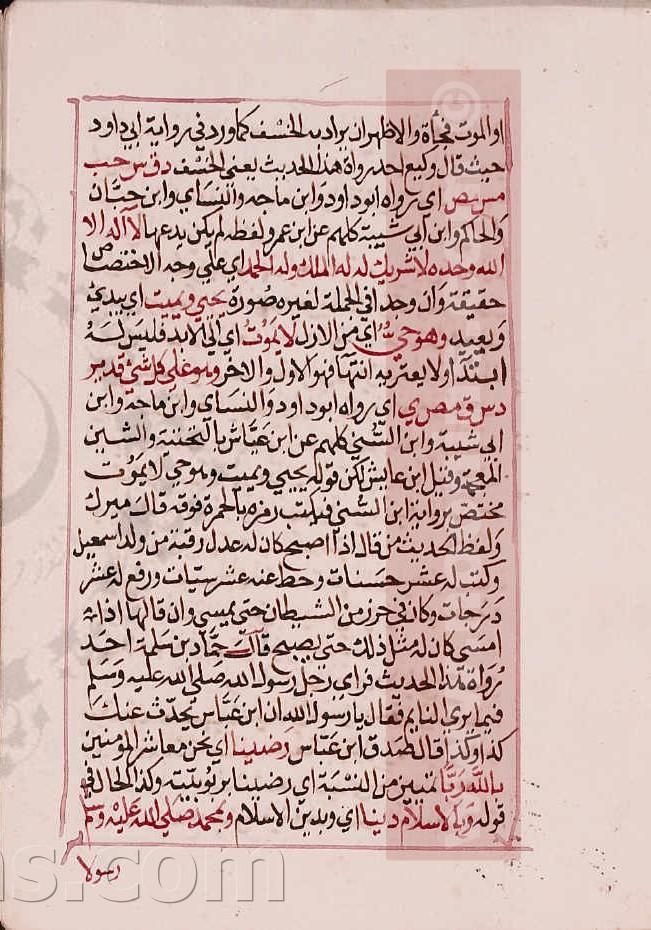 او الموت فجأة والاظهران يراد به الخسف كما ورد في رواية ابي داود
حيث قال وكيع احد رواة هذا الحديث يعني الخسف د ق س حب
مس مص اي رواه ابو داود وابن ماجه والنساي وابن حبان
والحاكم وابن ابي شيبة كلهم عن ابن عمر ولفظه لم يكن يدعها لا اله الا
الله وحده لا شريك له له الملك وله الحمد اي علي وجه الاختصاص
حقيقة وان وجد في الجملة لغيره صورة يحيي ويميت اي يبدئ
ويعيد وهو حي اي من الازل لا يموت اي الي الابد فليس له
ابتدآ ولا يعتريه انتهآ فهو الاول والاخر وهو علي كل شئ قدير
د س ق مص ي اي رواه ابو داود والنساي وابن ماجة وابن
ابي شيبة وابن السني كلهم عن ابن عياش بالتحتية والشين
المعجمة وقيل ابن عايش لكن قوله يحيي ويميت وهو حي لا يموت
مختص برواية ابن السني فيكتب رمزه بالحمرة فوقه قال ميرك
ولفظ الحديث من قال اذا اصبح كان له عدل رقبة من ولد اسمعيل
وكتب له عشر حسنات وحط عنه عشر سيّات ورفع له عشر
درجات وكان في حرز من الشيطان حتي يمسي وان قالها اذا
امسي كان له مثل ذلك حتي يصبح قال حماد بن سلمة احد
رواة هذا الحديث فراي رجل رسول الله صلي الله عليه وسلم
فيما يري النايم فقال يا رسول الله ان ابن عباس يحدث عنك
كذا وكذا قال صدق ابن عباس رضينا اي نحن معاشر المؤمنين
بالله ربا تمييز من النسبة اي رضينا بربوبيته وكذا الحال في
قوله وبالاسلام دينا اي وبدين الاسلام وبمحمد صلي الله عليه وسلم
رسولا
ns.com